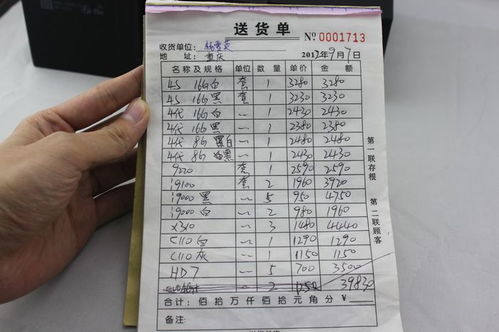 送货单
№ 0001713
收货单位:
2012年9月7日
地 址: 重庆
名称及规格 单位 数量 单价 金额
4S 16G白 套 1 3280 3280
4S 16G黑 套 1 3230 3230
4代 16G白 1 2430 2430
4代 16G黑 1 2380 2380
4代 8G 黑白 1 2480 2480
4代 8G 白黑 1 2430 2430
9220 套 1 2590 2590
i9100 套 2 1960 3920
i9000 黑 5 950 4750
i9000 白 2 980 1960
X310 3 1480 4440
C110 白 1 1290 1290
C110 灰 1 1150 1150
HD7 5 700 3500
2 1250 39830
合计: 佰 拾 万 仟 佰 拾 元 角 分 ¥
备注:
第一联存根 第二联顾客